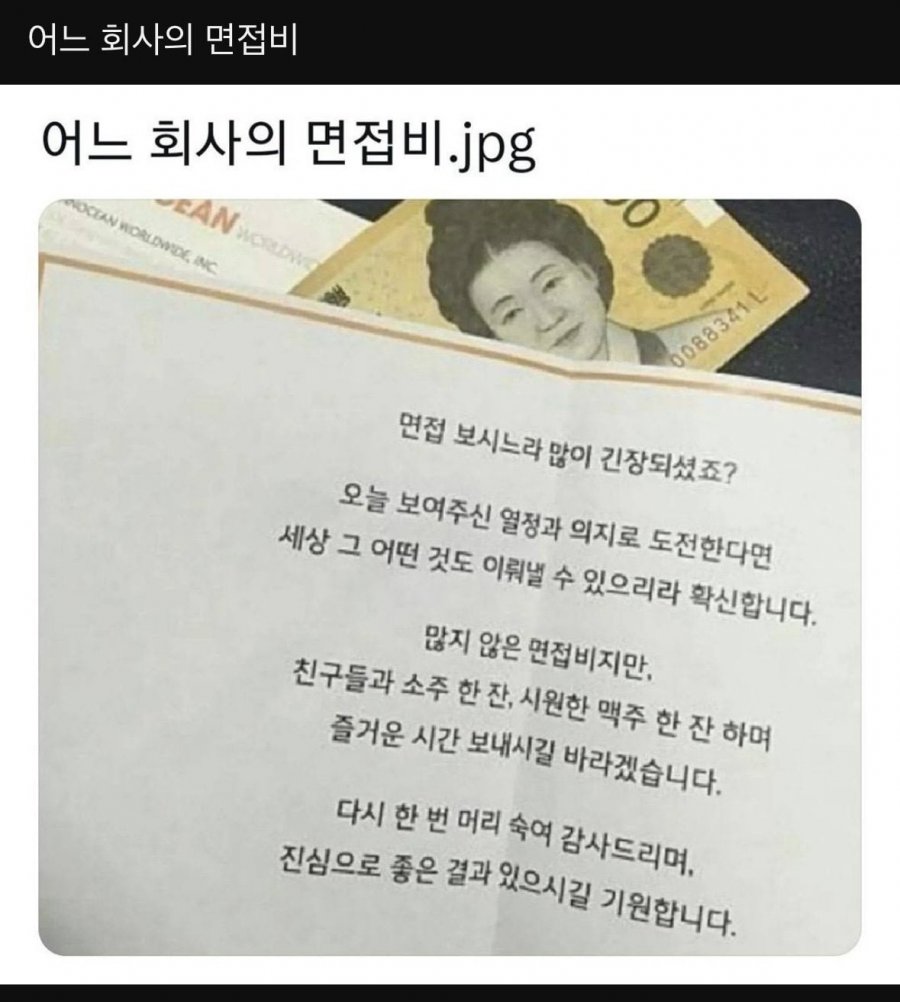 어느 회사의 면접비
어느 회사의 면접비.jpg
EAN WORLDWI
NOCEAN WORLDWIDE, INC.
0088341 L
면접 보시느라 많이 긴장되셨죠?
오늘 보여주신 열정과 의지로 도전한다면
세상 그 어떤 것도 이뤄낼 수 있으리라 확신합니다.
많지 않은 면접비지만,
친구들과 소주 한 잔, 시원한 맥주 한 잔 하며
즐거운 시간 보내시길 바라겠습니다.
다시 한 번 머리 숙여 감사드리며,
진심으로 좋은 결과 있으시길 기원합니다.